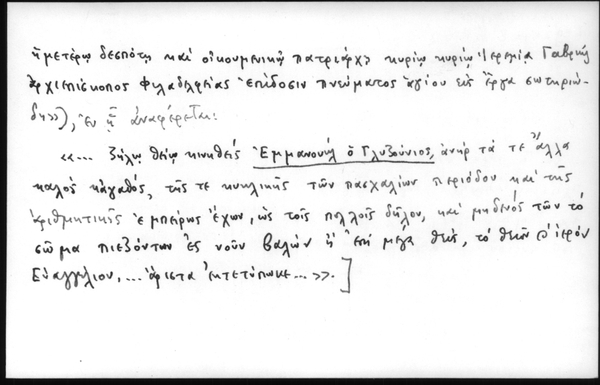 ἡμετέρῳ δεσπότῃ καὶ οἰκουμενικῷ πατριάρχῃ κυρίῳ κυρίῳ Ἱερεμίᾳ Γαβριὴλ
ἀρχιεπίσκοπος Φιλαδελφείας ἐπίδοσιν πνεύματος ἁγίου εἰς ἔργα σωτηριώ-
δη»), ἐν ᾗ ἀναφέρεται:
«... ζήλῳ θείῳ κινηθεὶς Ἐμμανουὴλ ὁ Γλυζούνιος, ἀνὴρ τά τε ἄλλα
καλὸς κἀγαθός, τῆς τε κυκλικῆς τῶν πασχαλίων περιόδου καὶ τῆς
ἀριθμητικῆς ἐμπείρως ἔχων, ὡς τοῖς πολλοῖς δῆλον, καὶ μηδενὸς τῶν τὸ
σῶμα πιεζόντων ἐς νοῦν βαλὼν ἢ ἐπὶ μέγα θεὶς, τὸ θεῖον ἱερὸν
Εὐαγγέλιον, ... ἄριστα ἐκτετύπωκε ... ».]